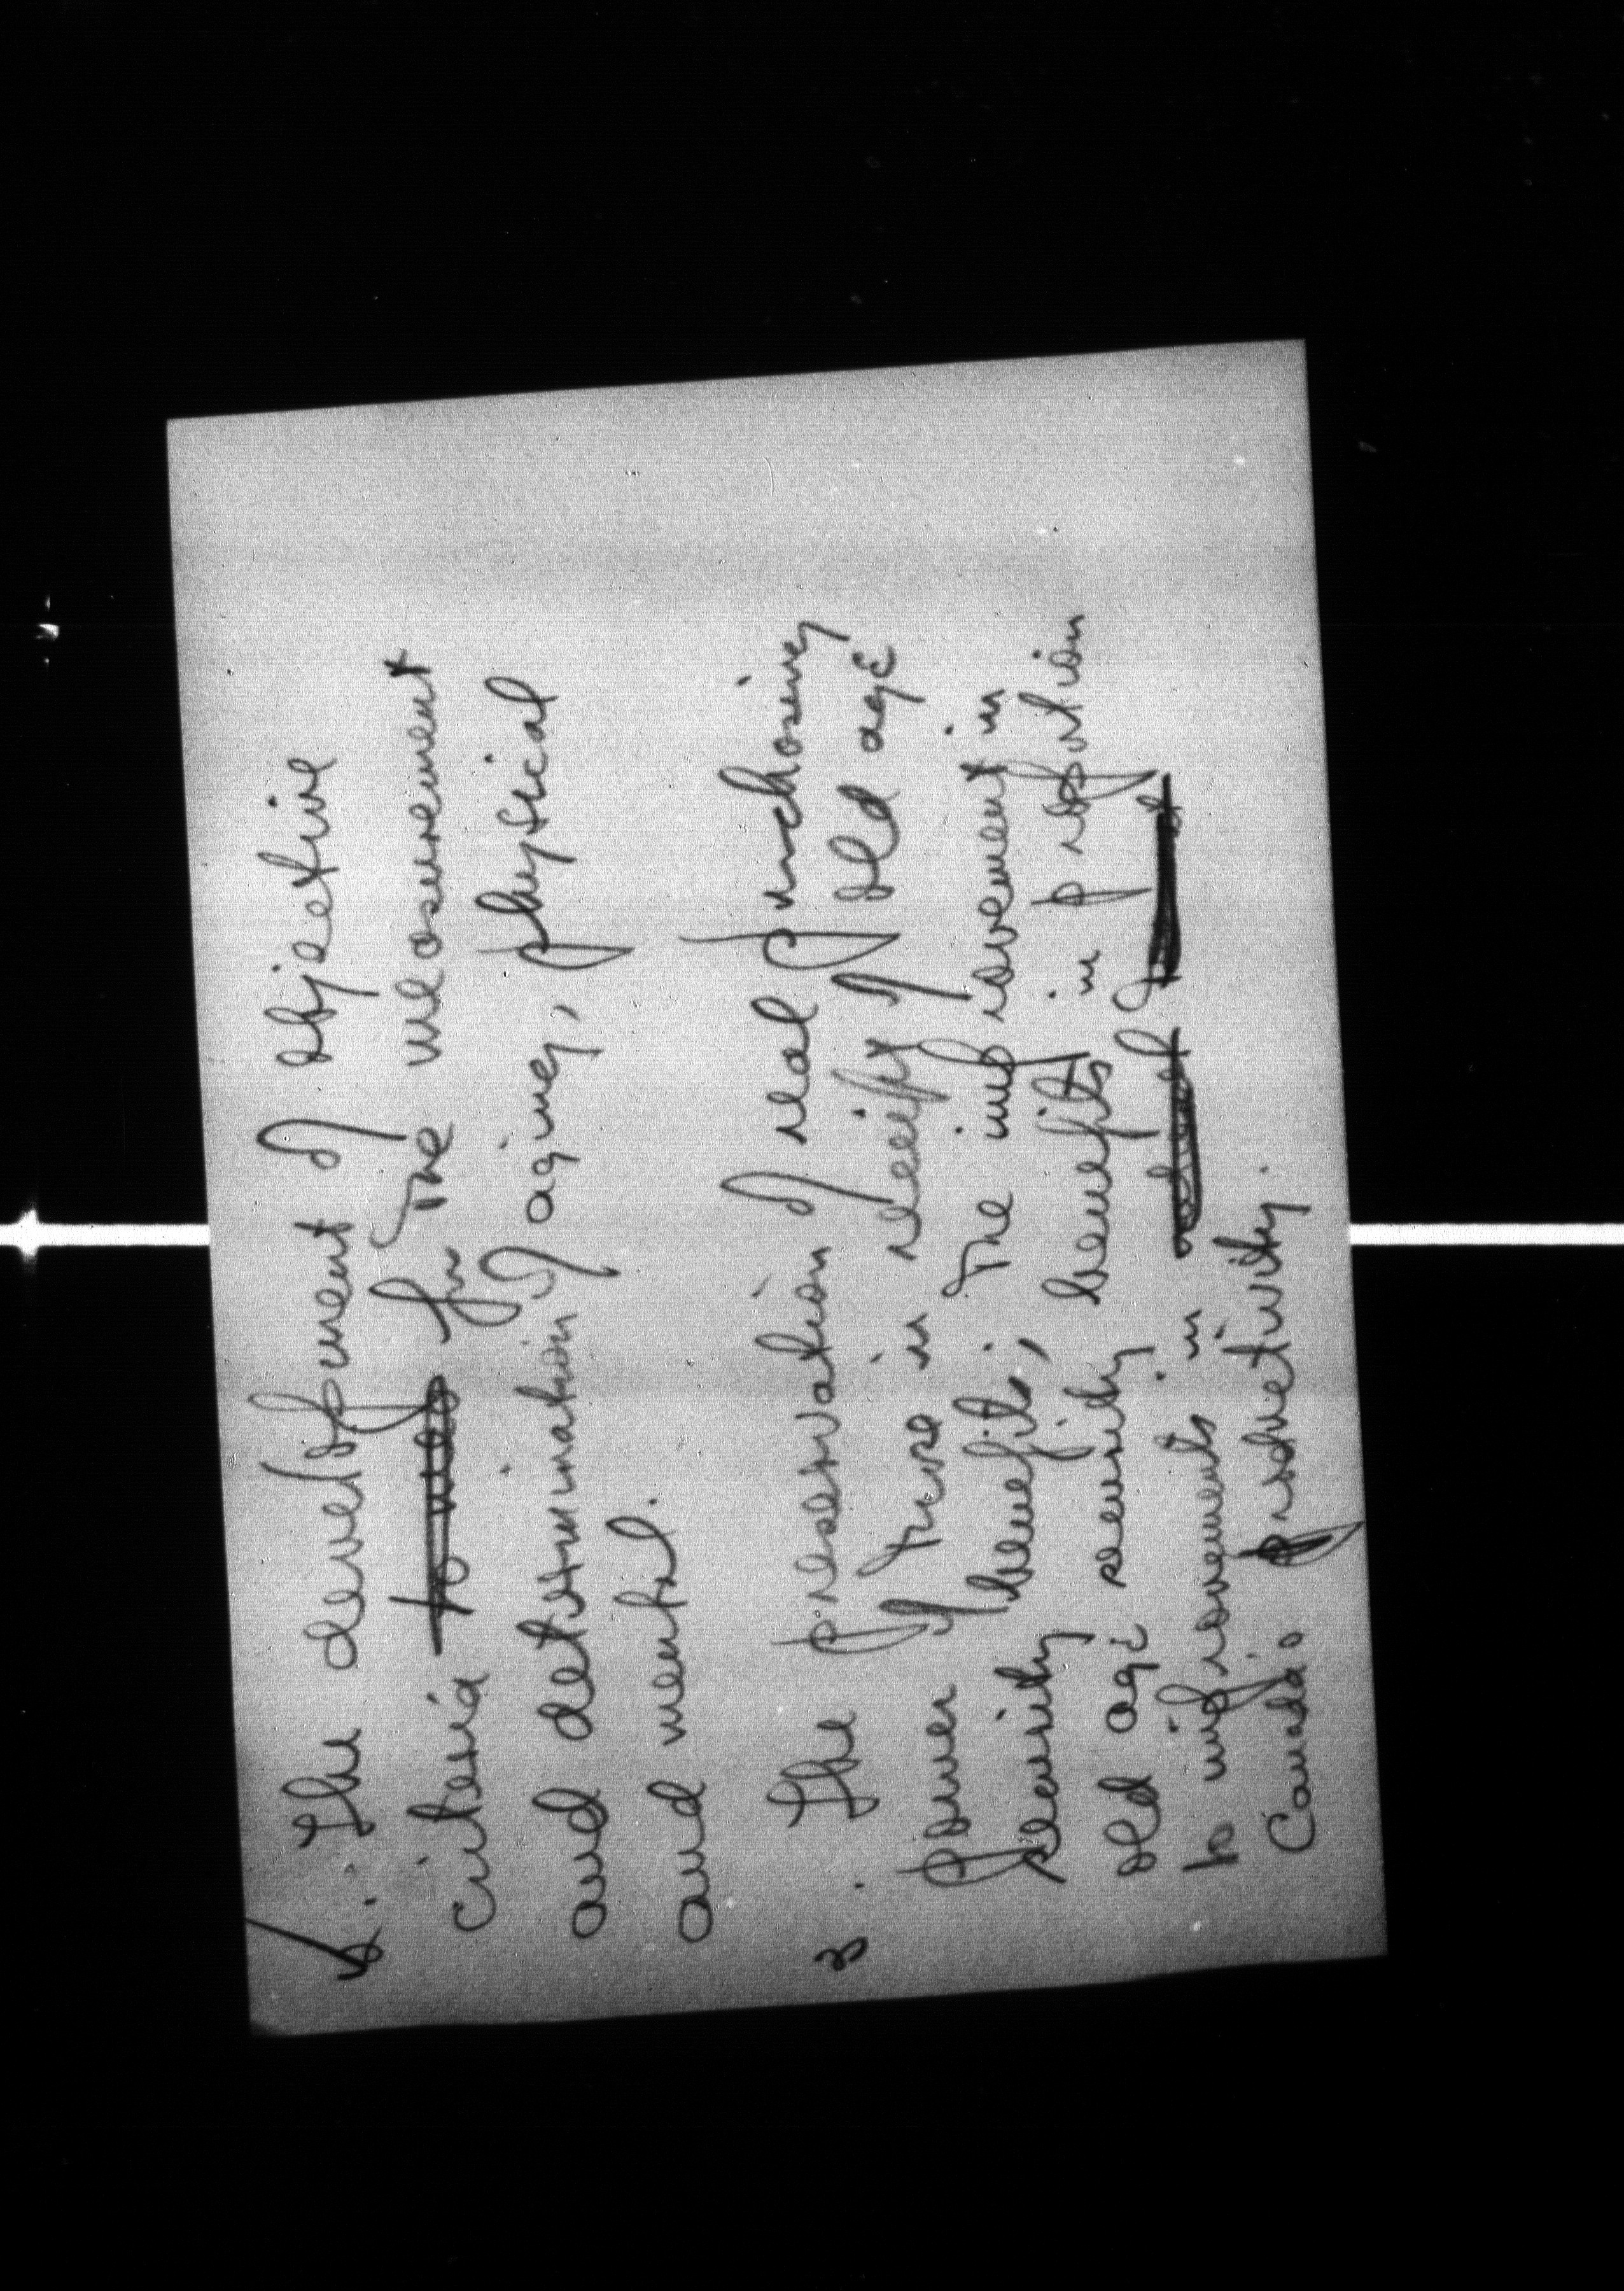 The development of objective
criteria for the measurement
and determination of aging, physical
and mental.
3. The preservation of real purchasing
power of those in receipt of old age
security benefits; the improvement in
old age security benefits in proportion
to improvements in
Canada's productivity.